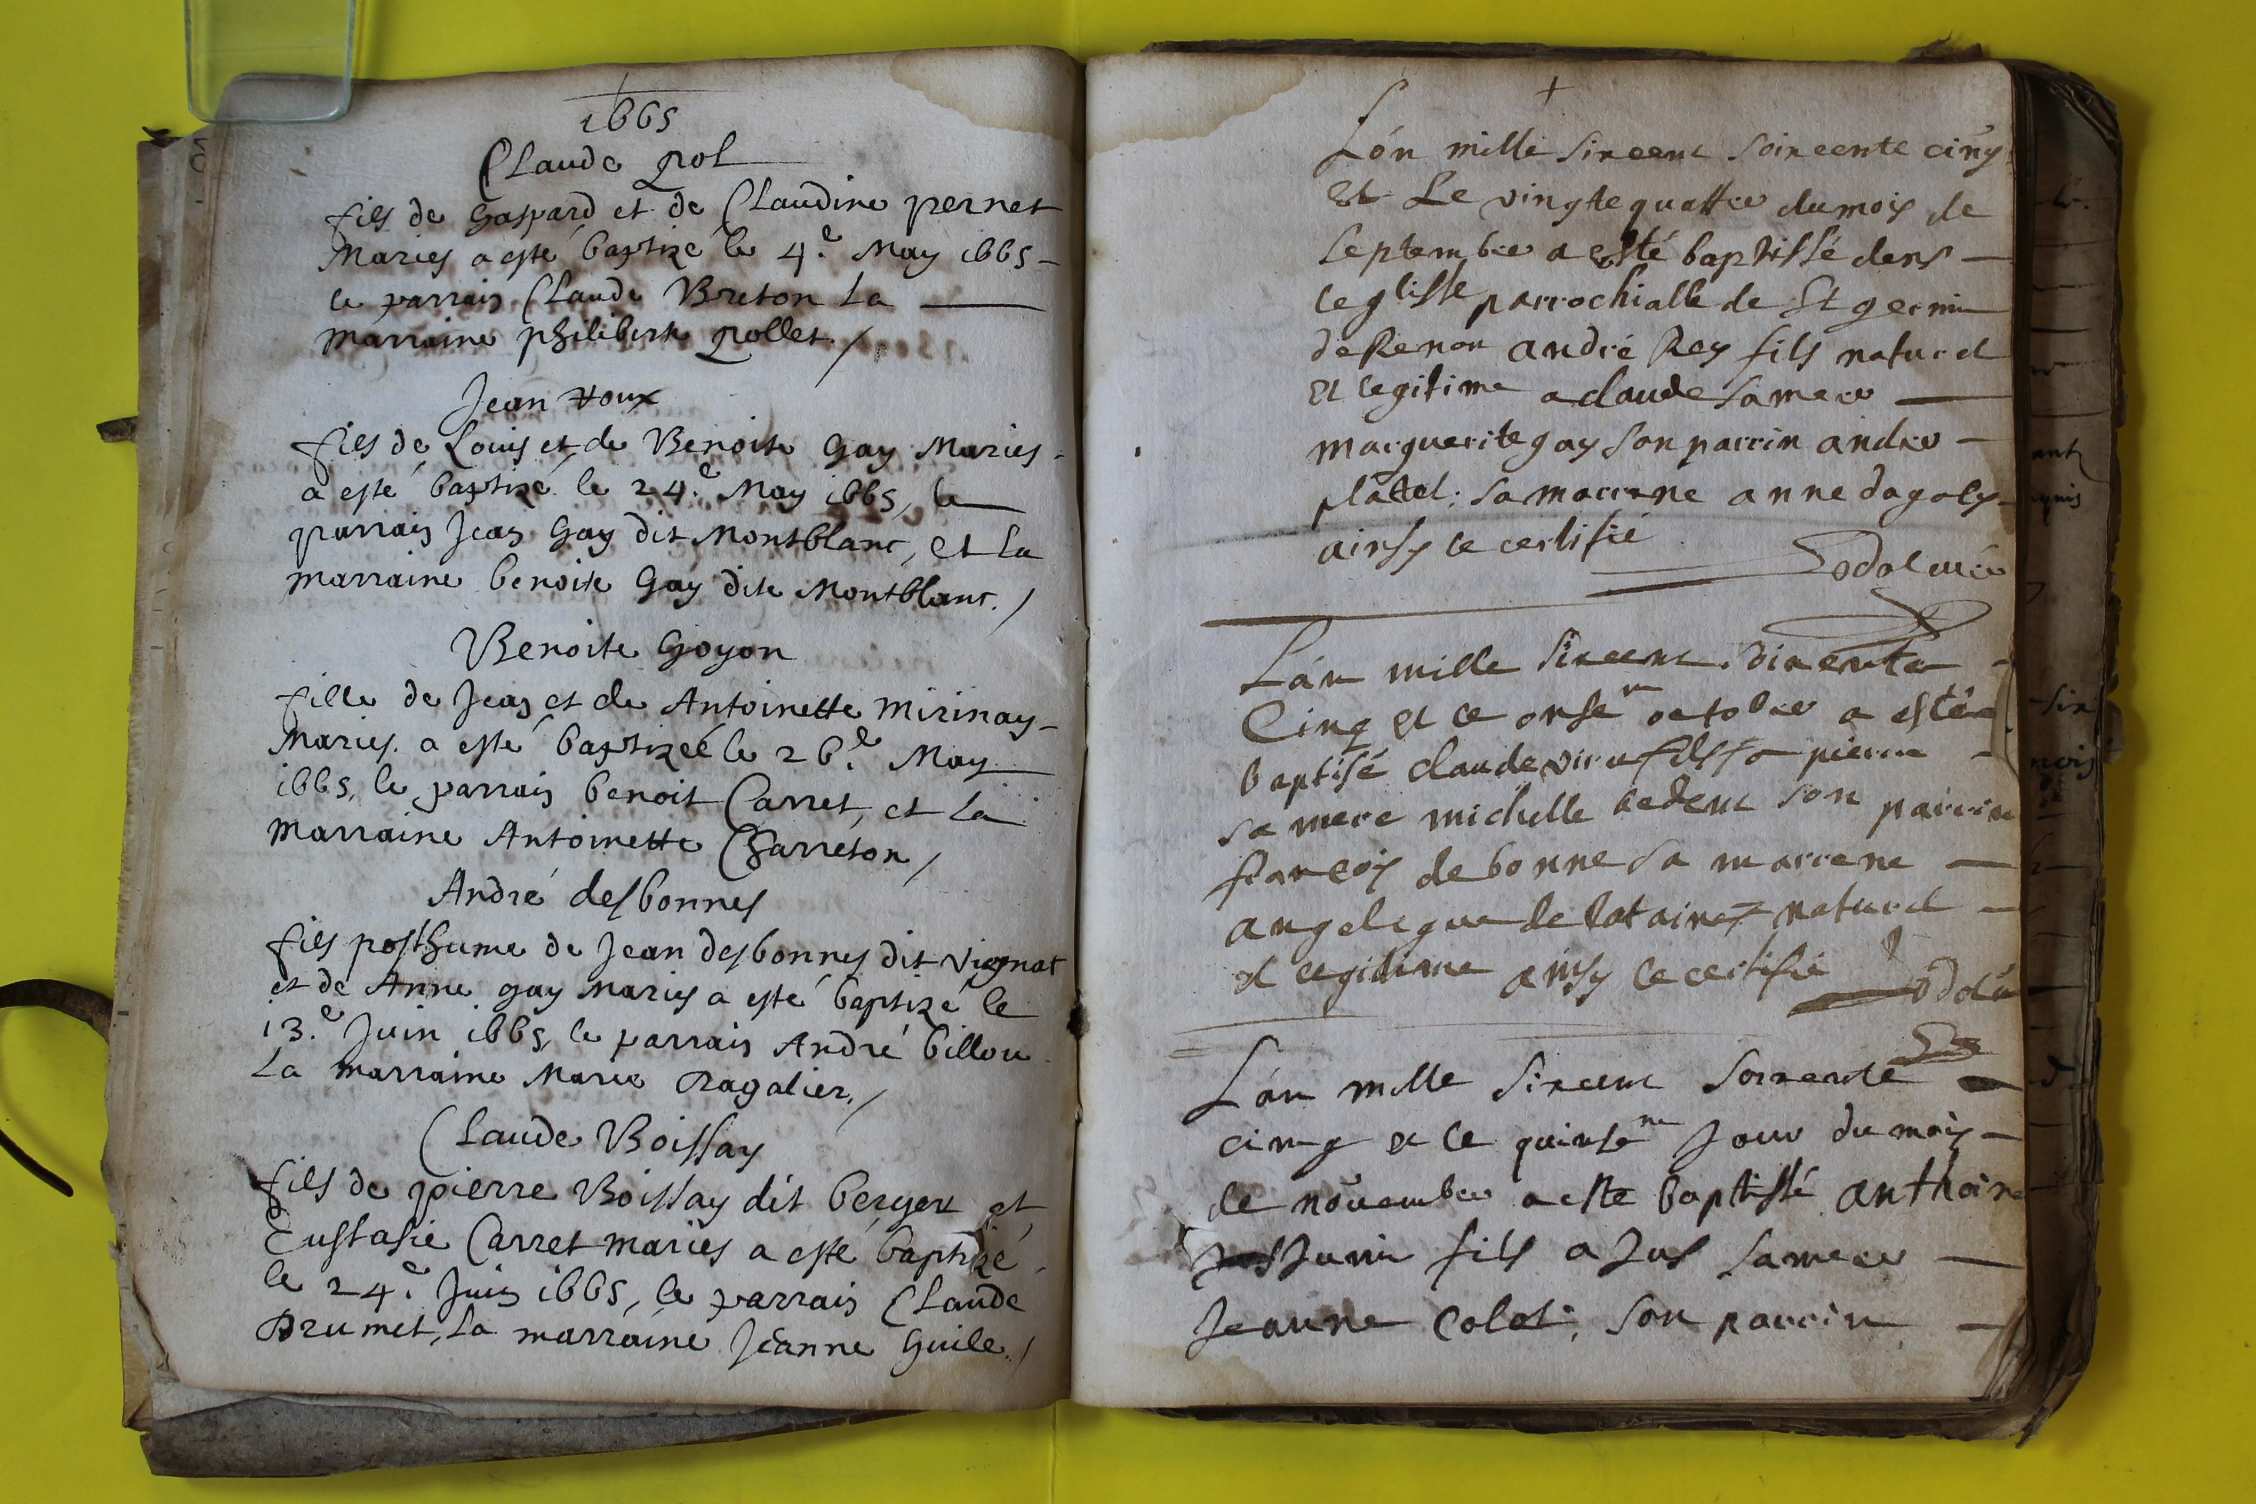 1665
Claude Pol
fils de Gaspard et de Claudine pernet
Maries a esté baptizé le 4.e May 1665
le parrain Claude Breton La
marraine philiberte Pollet./
Jean Roux
fils de Louis et de Benoite Gay Maries
a esté baptizé le 24.e May 1665, le
parrain Jean Gay dit Montblanc, et La
marraine benoite Gay dite Montblanc./
Benoite Goyon
fille de Jean et de Antoinette mirinay
Maries. a esté baptizeé le 26.e May
1665, le parrain benoit Carret, et La
marraine Antoinette Charreton/
André desbonnes
fils posthume de Jean desbonnes dit Vignat
et de Anne gay Maries a esté baptizé le
13.e Juin 1665, le parrain André billou
La marraine Marie Ragatier./
Claude Boissay
fils de pierre Boissay dit berger et
Eustasie Carret mariés a esté baptizé
le 24.e Juin 1665, le parrain Claude
Brumet, La marraine Jeanne Guile./
L'on mille sixcent soixcente cinq
Et Le vingte quattre du mois de
septembre a esté baptissé dens
leglisse parrochialle de St germin
de Renon andré Rey fils naturel
et legitime a claude sa mere
marguerite gay son parrin andre
plattel: sa marrene anne
ainsy le certifie
L'an mille sixcent soixente
Cinq et le onse m octobre a esté
baptisé claude fils a pierre
sa mere michelle son parrin
françois de bonne sa marrene
angelique de naturel
et legitime ainsy le certifie
L'an mille sixcent soixente
cinq et le quinse me Jour du mois
de nouembre a este baptissé anthoine
Junin fils a Jus sa mere
Jeanne Colot: son parrin